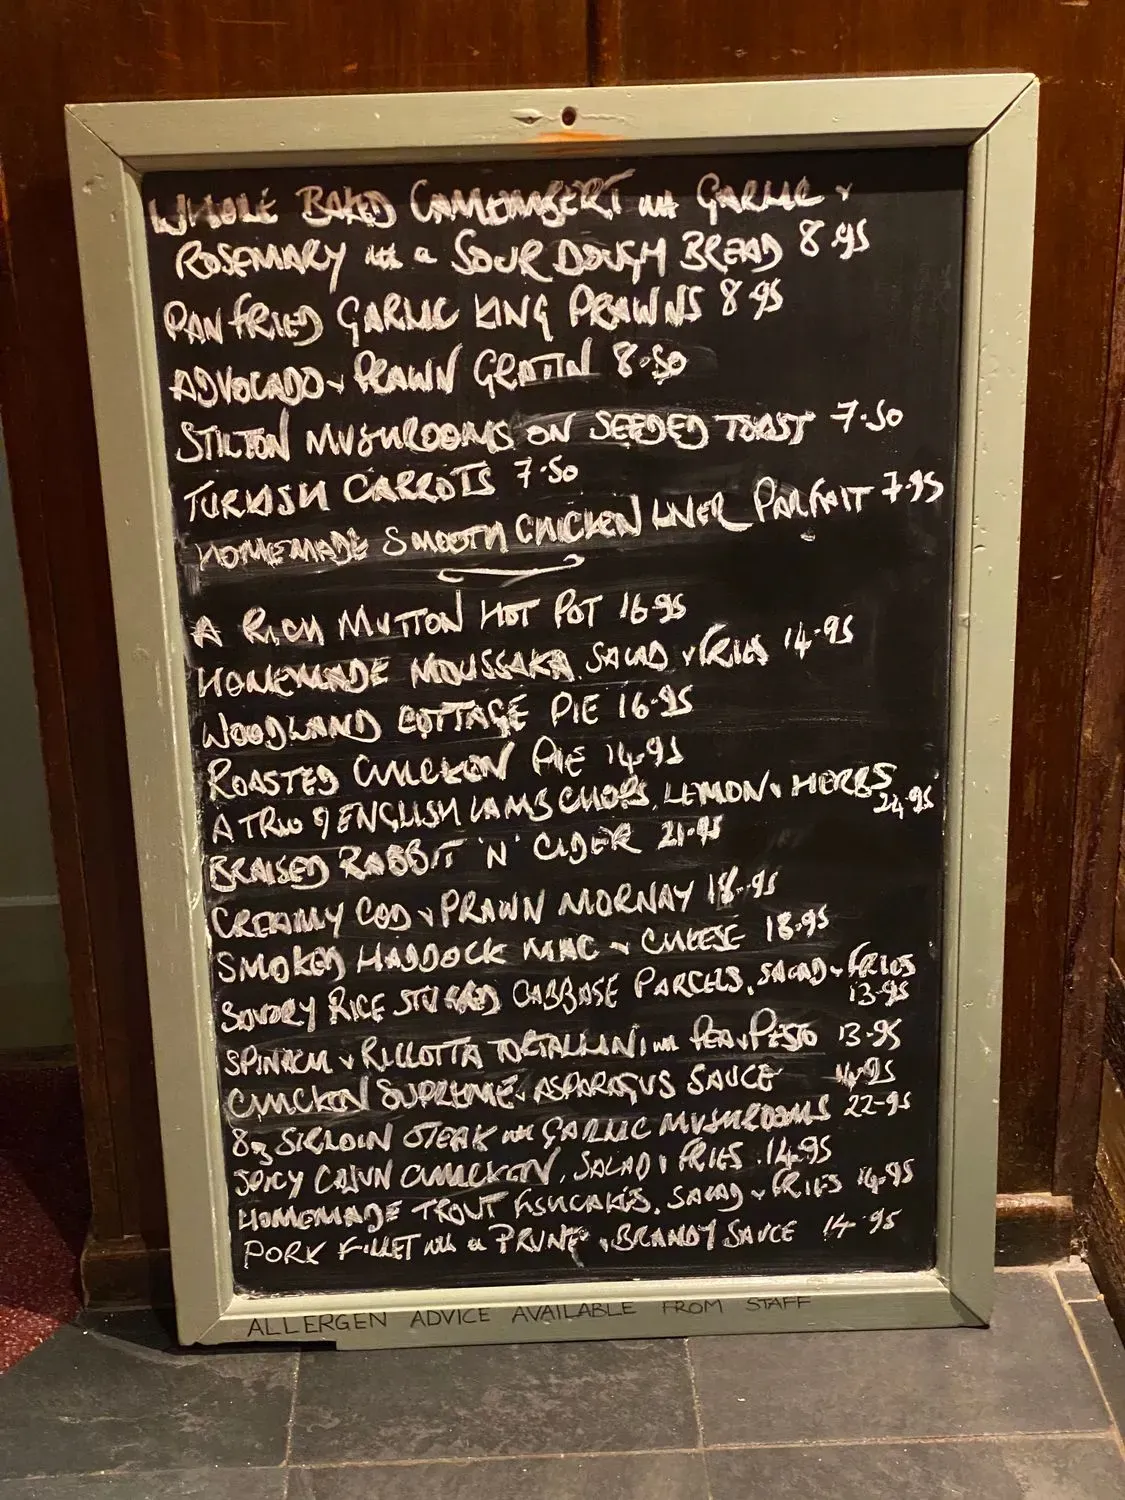 WHOLE BAKED CAMEMBERT with GARLIC +
ROSEMARY with a SOUR DOUGH BREAD 8.95
PAN FRIED GARLIC KING PRAWNS 8.95
ADVOCADO + PRAWN GRATIN 8.50
STILTON MUSHROOMS ON SEEDED TOAST 7.50
TURKISH CARROTS 7.50
HOMEMADE SMOOTH CHICKEN LIVER PARFAIT 7.95
A RICH MUTTON HOT POT 16.95
HOMEMADE MOUSSAKA, SALAD + FRIES 14.95
WOODLAND COTTAGE PIE 16.95
ROASTED CHICKEN PIE 14.95
A TRIO of ENGLISH LAMB CHOPS, LEMON + HERBS
24.95
BRAISED RABBIT 'N' CIDER 21.95
CREAMY COD + PRAWN MORNAY 18.95
SMOKED HADDOCK MAC + CHEESE 18.95
SAVORY RICE STUFFED CABBAGE PARCELS, SALAD + FRIES
13.95
SPINACH + RICCOTTA TORTALLINI with PEA + PESTO 13.95
CHICKEN SUPREME + ASPARAGUS SAUCE 14.95
8oz SIRLOIN STEAK with GARLIC MUSHROOMS 22.95
SPICY CAJUN CHICKEN, SALAD + FRIES 14.95
HOMEMADE TROUT FISHCAKES, SALAD + FRIES 14.95
PORK FILLET with a PRUNE + BRANDY SAUCE 14.95
ALLERGEN ADVICE AVAILABLE FROM STAFF